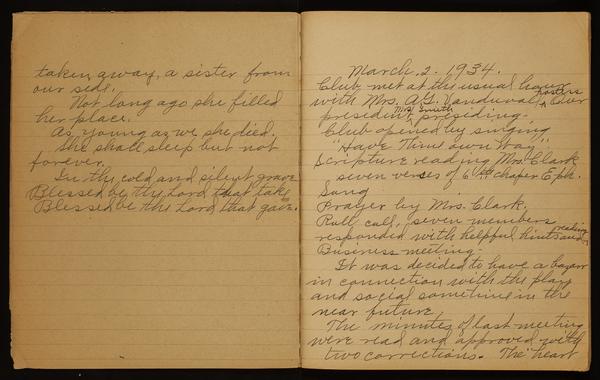 taken away, a sister from
our side.
Not long ago she filled
her place.
As young as we she died.
She shall sleep but not
forever.
In thy cold and silent grave
Blessed be the Lord that take
Blessed be the Lord that gave.
March. 2. 1934.
Club met at the usual hour
with Mrs. A.G. Vanduvall, hostess Our
president Mrs Smith presiding.
Club opened by singing
"Have Thine own Way"
Scripture reading Mrs. Clark
seven verses of 6th chapter Eph.
Song
Prayer by Mrs. Clark.
Roll call, seven members
responded with helpful hints and reading
Business meeting.
It was decided to have a bazaar
in connection with the play
and social sometime in the
near future
The minutes of last meeting
were read and approved with
two corrections. The heart